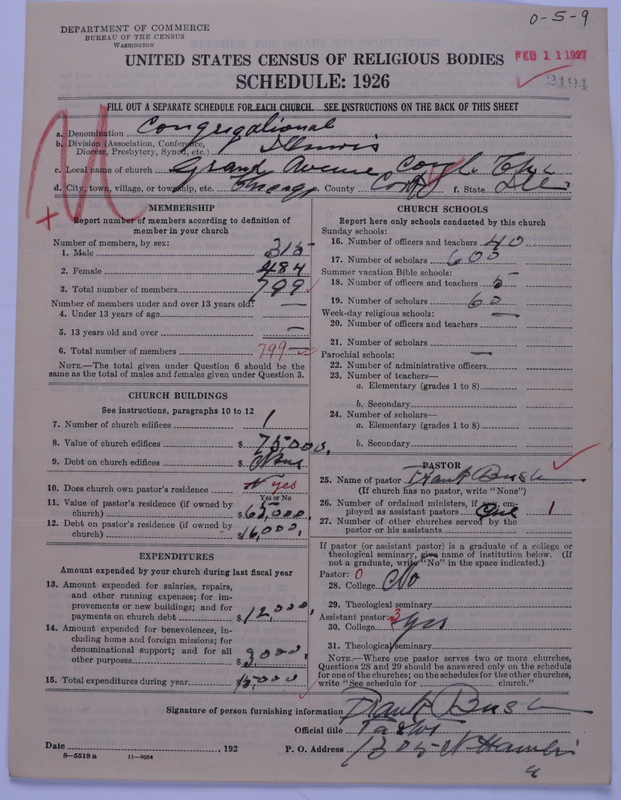 0-5-9
DEPARTMENT OF COMMERCE
BUREAU OF THE CENSUS
WASHINGTON
FEB 11 1927
2194
UNITED STATES CENSUS OF RELIGIOUS BODIES
SCHEDULE: 1926
FILL OUT A SEPARATE SCHEDULE FOR EACH CHURCH. SEE INSTRUCTIONS ON THE BACK OF THIS SHEET
a. Denomination Congrigational
b. Division (Association, Conference, Diocese, Presbytery, Synod, etc.) Illinois
c. Local name of church Grand Avenue Cong'l
d. City, town, village, or township, etc. Chicago County Cook f. State Ill
MEMBERSHIP
Report number of members according to definition of
member in your church
Number of members, by sex:
1. Male 315
2. Female 484
3. Total number of members 799
Number of members under and over 13 years old: —
4. Under 13 years of age
5. 13 years old and over —
6. Total number of members 799
NOTE.—The total given under Question 6 should be
same as the total of males and females given under Question 3.
CHURCH BUILDINGS
See instructions, paragraphs 10 to 12
7. Number of church edifices 1
8. Value of church edifices $ 75000.
9. Debt on church edifices $ None
10. Does church own pastor's residence yes
Yes or No
11. Value of pastor's residence (if owned by
church) $ 65,000.
12. Debt on pastor's residence (if owned by
church) $ 16,000.
EXPENDITURES
Amount expended by your church during last fiscal year
13. Amount expended for salaries, repairs,
and other running expenses; for im-
provements or new buildings; and for
payments on church debt $ 12,000.
14. Amount expended for benevolences, in-
cluding home and foreign missions; for
denominational support; and for all
other purposes $ 3000.
15. Total expenditures during year $15000
CHURCH SCHOOLS
Report here only schools conducted by this church
Sunday schools:
16. Number of officers and teachers 40
17. Number of scholars 600
Summer vacation Bible schools:
18. Number of officers and teachers 5
19. Number of scholars 60
Week-day religious schools: —
20. Number of officers and teachers
21. Number of scholars
Parochial schools: —
22. Number of administrative officers
23. Number of teachers—
a. Elementary (grades 1 to 8)
b. Secondary
24. Number of scholars—
a. Elementary (grades 1 to 8)
b. Secondary
PASTOR
25. Name of pastor Frank Bush
(If church has no pastor, write "None")
26. Number of ordained ministers, if any, em-
ployed as assistant pastors One 1
27. Number of other churches served by the
pastor or his assistants
If pastor (or assistant pastor) is a graduate of a college or
theological seminary, give name of institution below. (If
not a graduate, write "No" in the space indicated.)
Pastor: 0
28. College No
29. Theological seminary
Assistant pastor: 3
30. College yes
31. Theological seminary
NOTE.—Where one pastor serves two or more churches,
Questions 28 and 29 should be answered only on the schedule
for one of the churches; on the schedules for the other churches,
write "See schedule for church."
Signature of person furnishing information Frank Bush
Official title Pastor
Date , 192 P. O. Address 1305 N Hamlin
8—5518 a 11—9054